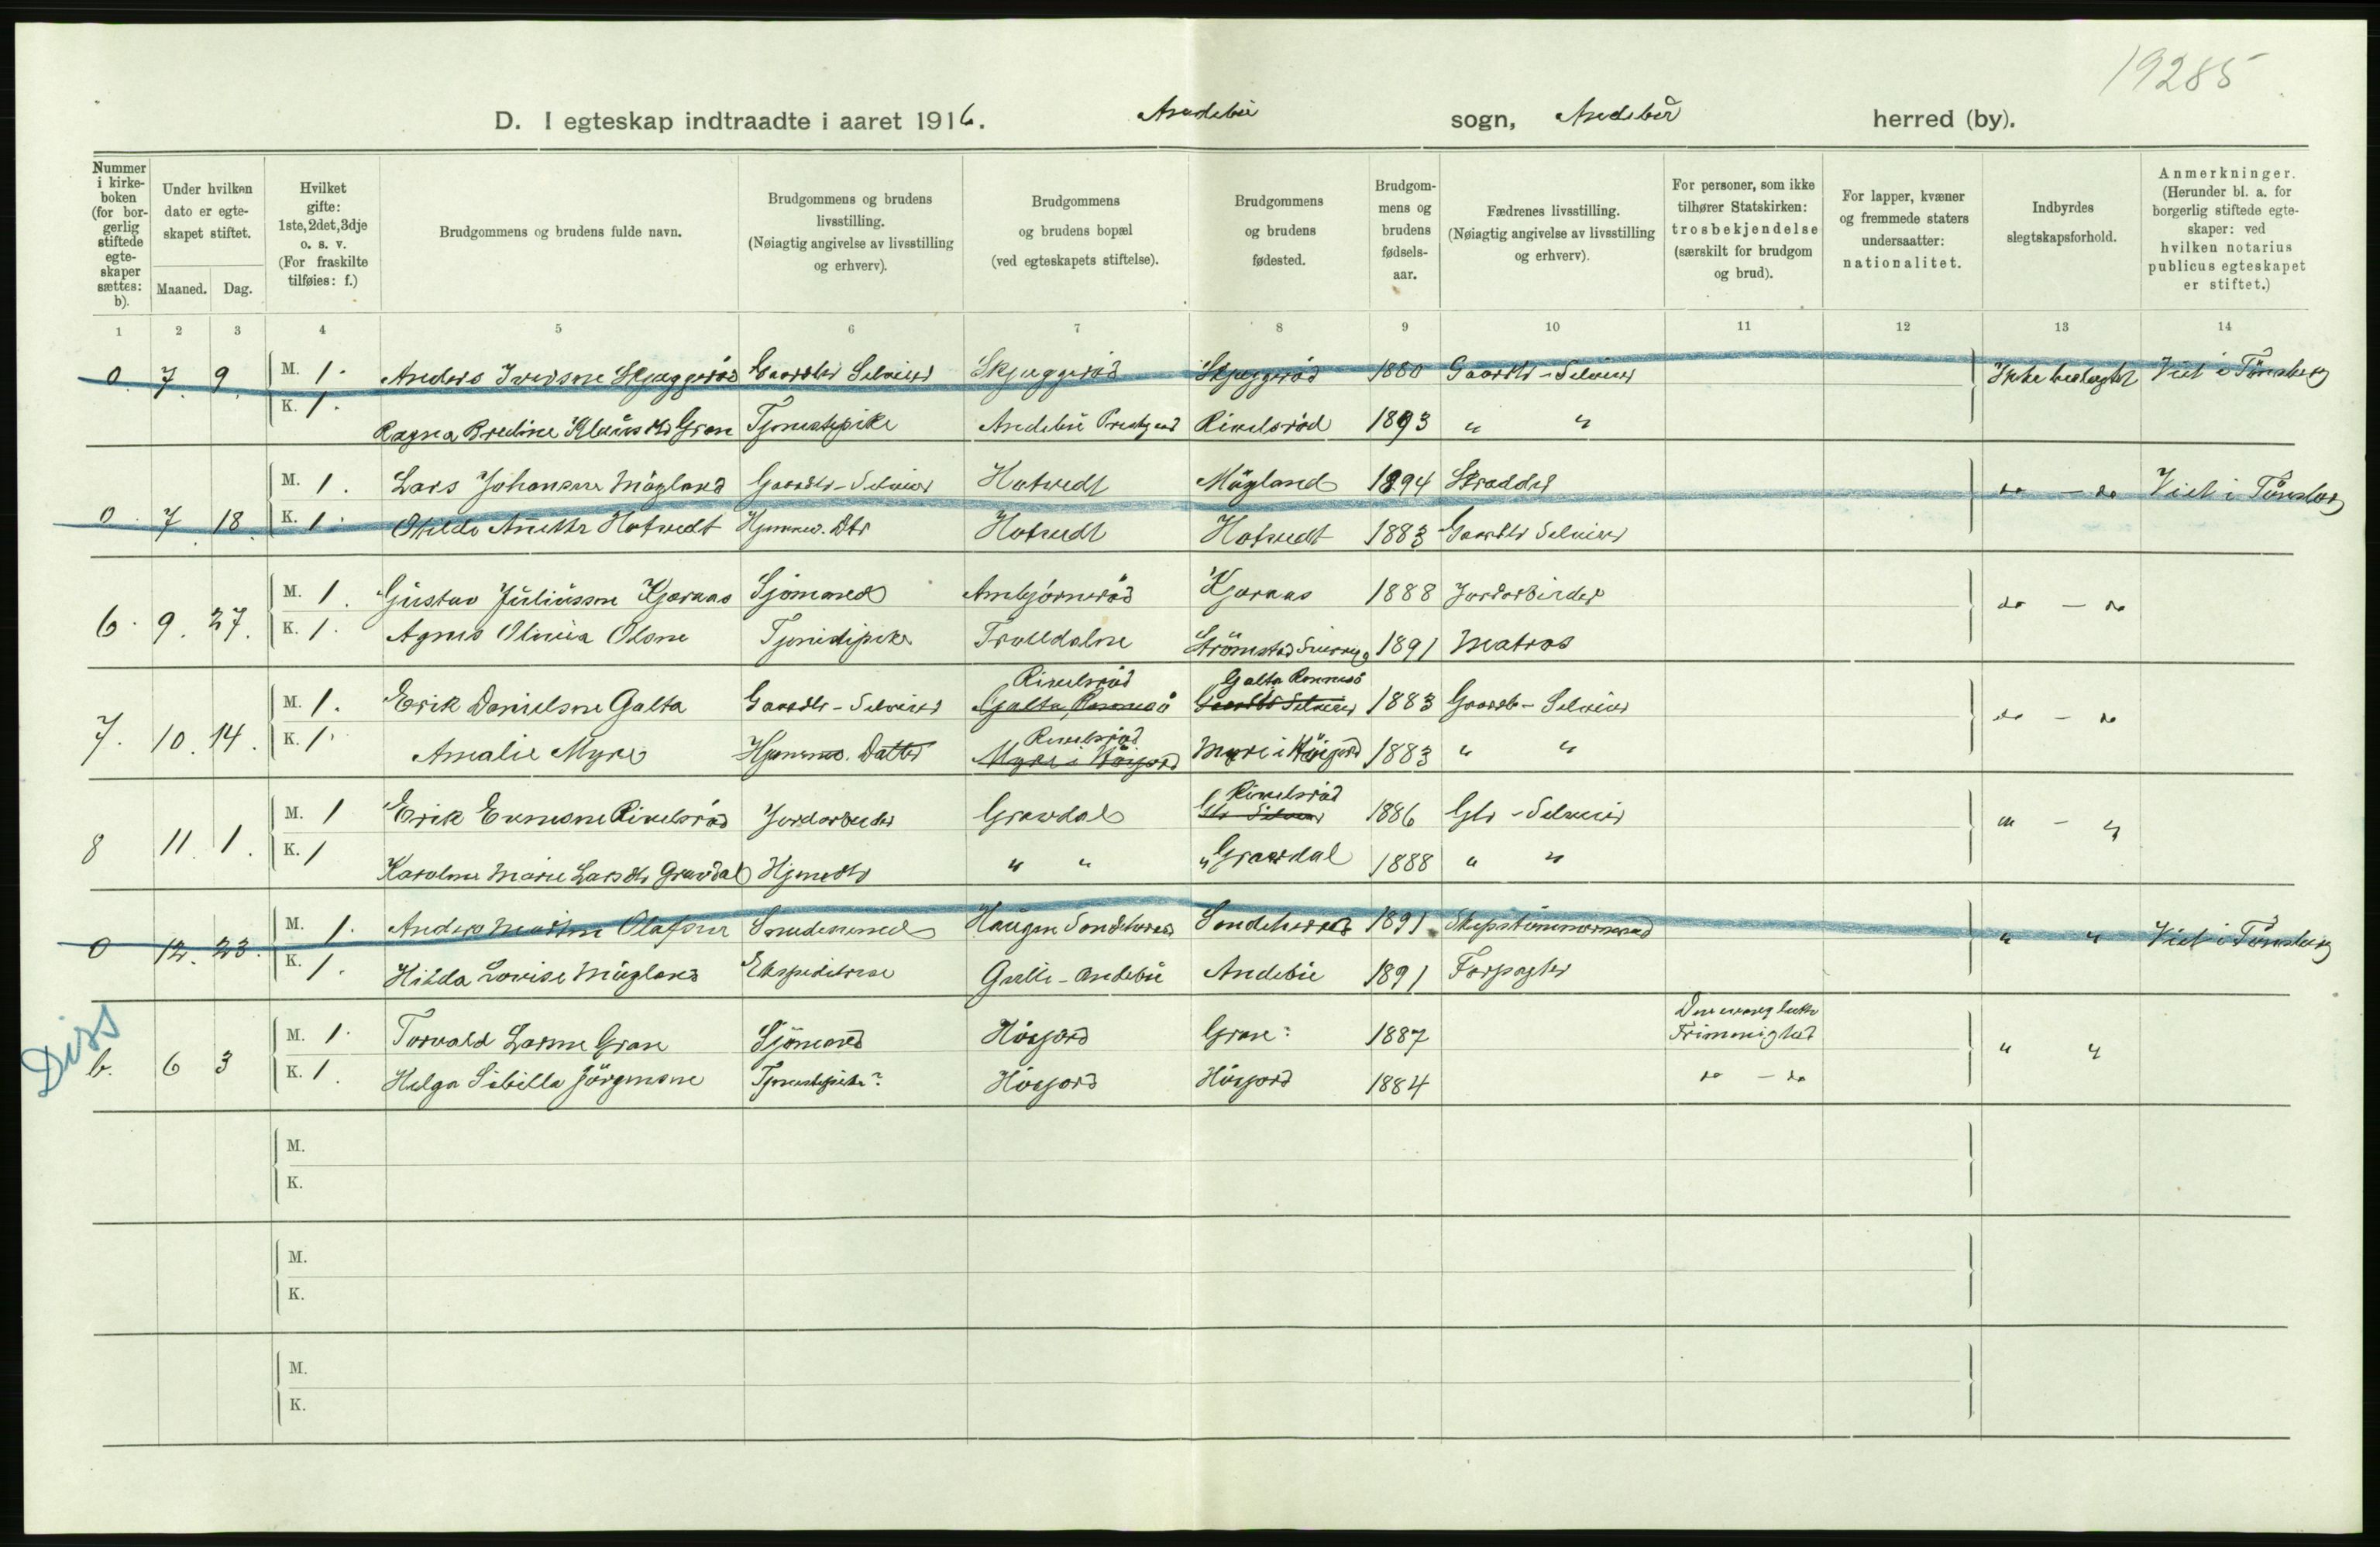 19285
D. I egteskap indtraadte i aaret 1916. Andebu sogn, Andebu herred (by).
Nummer i kirkeboken (for borgerlig stiftede egteskaper sættes: b).
Under hvilken dato er egteskapet stiftet.
Maaned. Dag.
Hvilket gifte: 1ste, 2det, 3dje o. s. v. (For fraskilte tilføies: f.)
Brudgommens og brudens fulde navn.
Brudgommens og brudens livsstilling. (Nøiagtig angivelse av livsstilling og erhverv).
Brudgommens og brudens bopæl (ved egteskapets stiftelse).
Brudgommens og brudens fødested.
Brudgommens og brudens fødselsaar.
Fædrenes livsstilling. (Nøiagtig angivelse av livsstilling og erhverv).
For personer, som ikke tilhører Statskirken: trosbekjendelse (særskilt for brudgom og brud).
For lapper, kvæner og fremmede staters undersaatter: nationalitet.
Indbyrdes slegtskapsforhold.
Anmerkninger. (Herunder bl. a. for borgerlig stiftede egteskaper: ved hvilken notarius publicus egteskapet er stiftet.)
1 2 3 4 5 6 7 8 9 10 11 12 13 14
0. 7. 9. M. 1. Anders Iversen Skjuggerød Gaardbr Selveier Skjuggerød Skjuggerød 1880 Gaardbr - Selveier Ikke beslegtet Viet i Tönsberg
K. 1. Ragna Bredine Gran Tjenestepike Andebu Rivelsrød 1893 " "
0 7. 18. M. 1. Lars Johansen Möyland Gaardbr - Selveier Hotvedt Möyland 1894 Skrædder do - do Viet i Tönsberg
K. 1. Anette Hotvedt Hjemmev. Dtr Hotvedt Hotvedt 1883 Gaardbr Selveier
6. 9. 27. M. 1. Gustav Juliussen Kjæraas Sjömand Kjæraas 1888 Jordarbeider do - do
K. 1. Agnes Olivia Olsen Tjenestepike Trolldalen Strömstad 1891 Matros
7. 10. 14. M. 1. Erik Danielsen Galta Gaardbr - Selveier Rivelsröd Galta Rennesö Galta Rennesö Gaardbr Selveier 1883 Gaardb - Selveier do - do
K. 1. Amalie Myre Hjemmev. Datter Rivelsröd Myre i Höijord Myre i Höijord 1883 " "
8 11. 1. M. 1 Erik Rivelsröd Jordarbeider Gravdal Rivelsröd Gbr Selveier 1886 Gbr - Selveier " - "
K. 1 Karoline Marie Larsdtr Gravdal Hjemdtr " " " Gravdal 1888 " "
0 12. 23. M. 1. Anders Martin Olafsen Snedkersvend Haugen Sandeherred Sandeherred 1891 Skipstömmermand " " Viet i Tönsberg
K. 1. Hilda Lovise Möyland Ekspeditrise Andebu Andebu 1891 Forpagter
Diss
b. 6 3 M. 1. Torvald Larsen Gran Sjömand Höijord Gran: 1887 Den evangl luth Frimenighet " "
K. 1. Helga Sibilla Jörgensen Tjenestepike? Höijord Höijord 1884 do - do
M.
K.
M.
K.
M.
K.